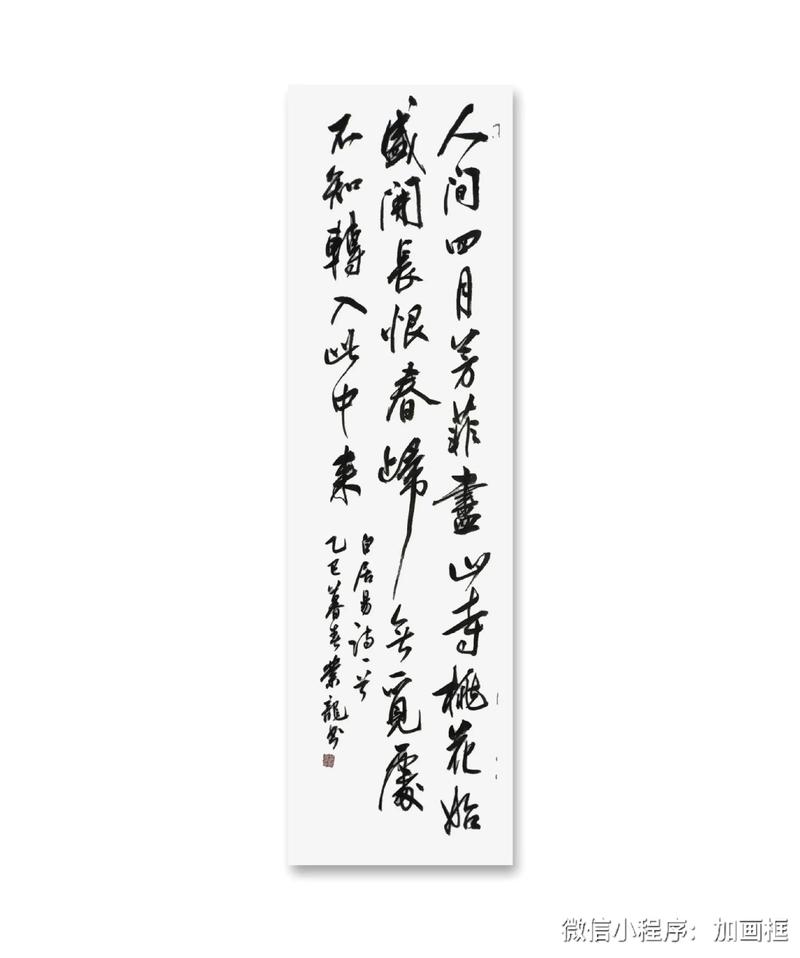 人间四月芳菲盡山寺桃花始
盛開長恨春歸無覓處
不知轉入此中来
白居易诗一首
乙巳暮春龍书
微信小程序：加画框